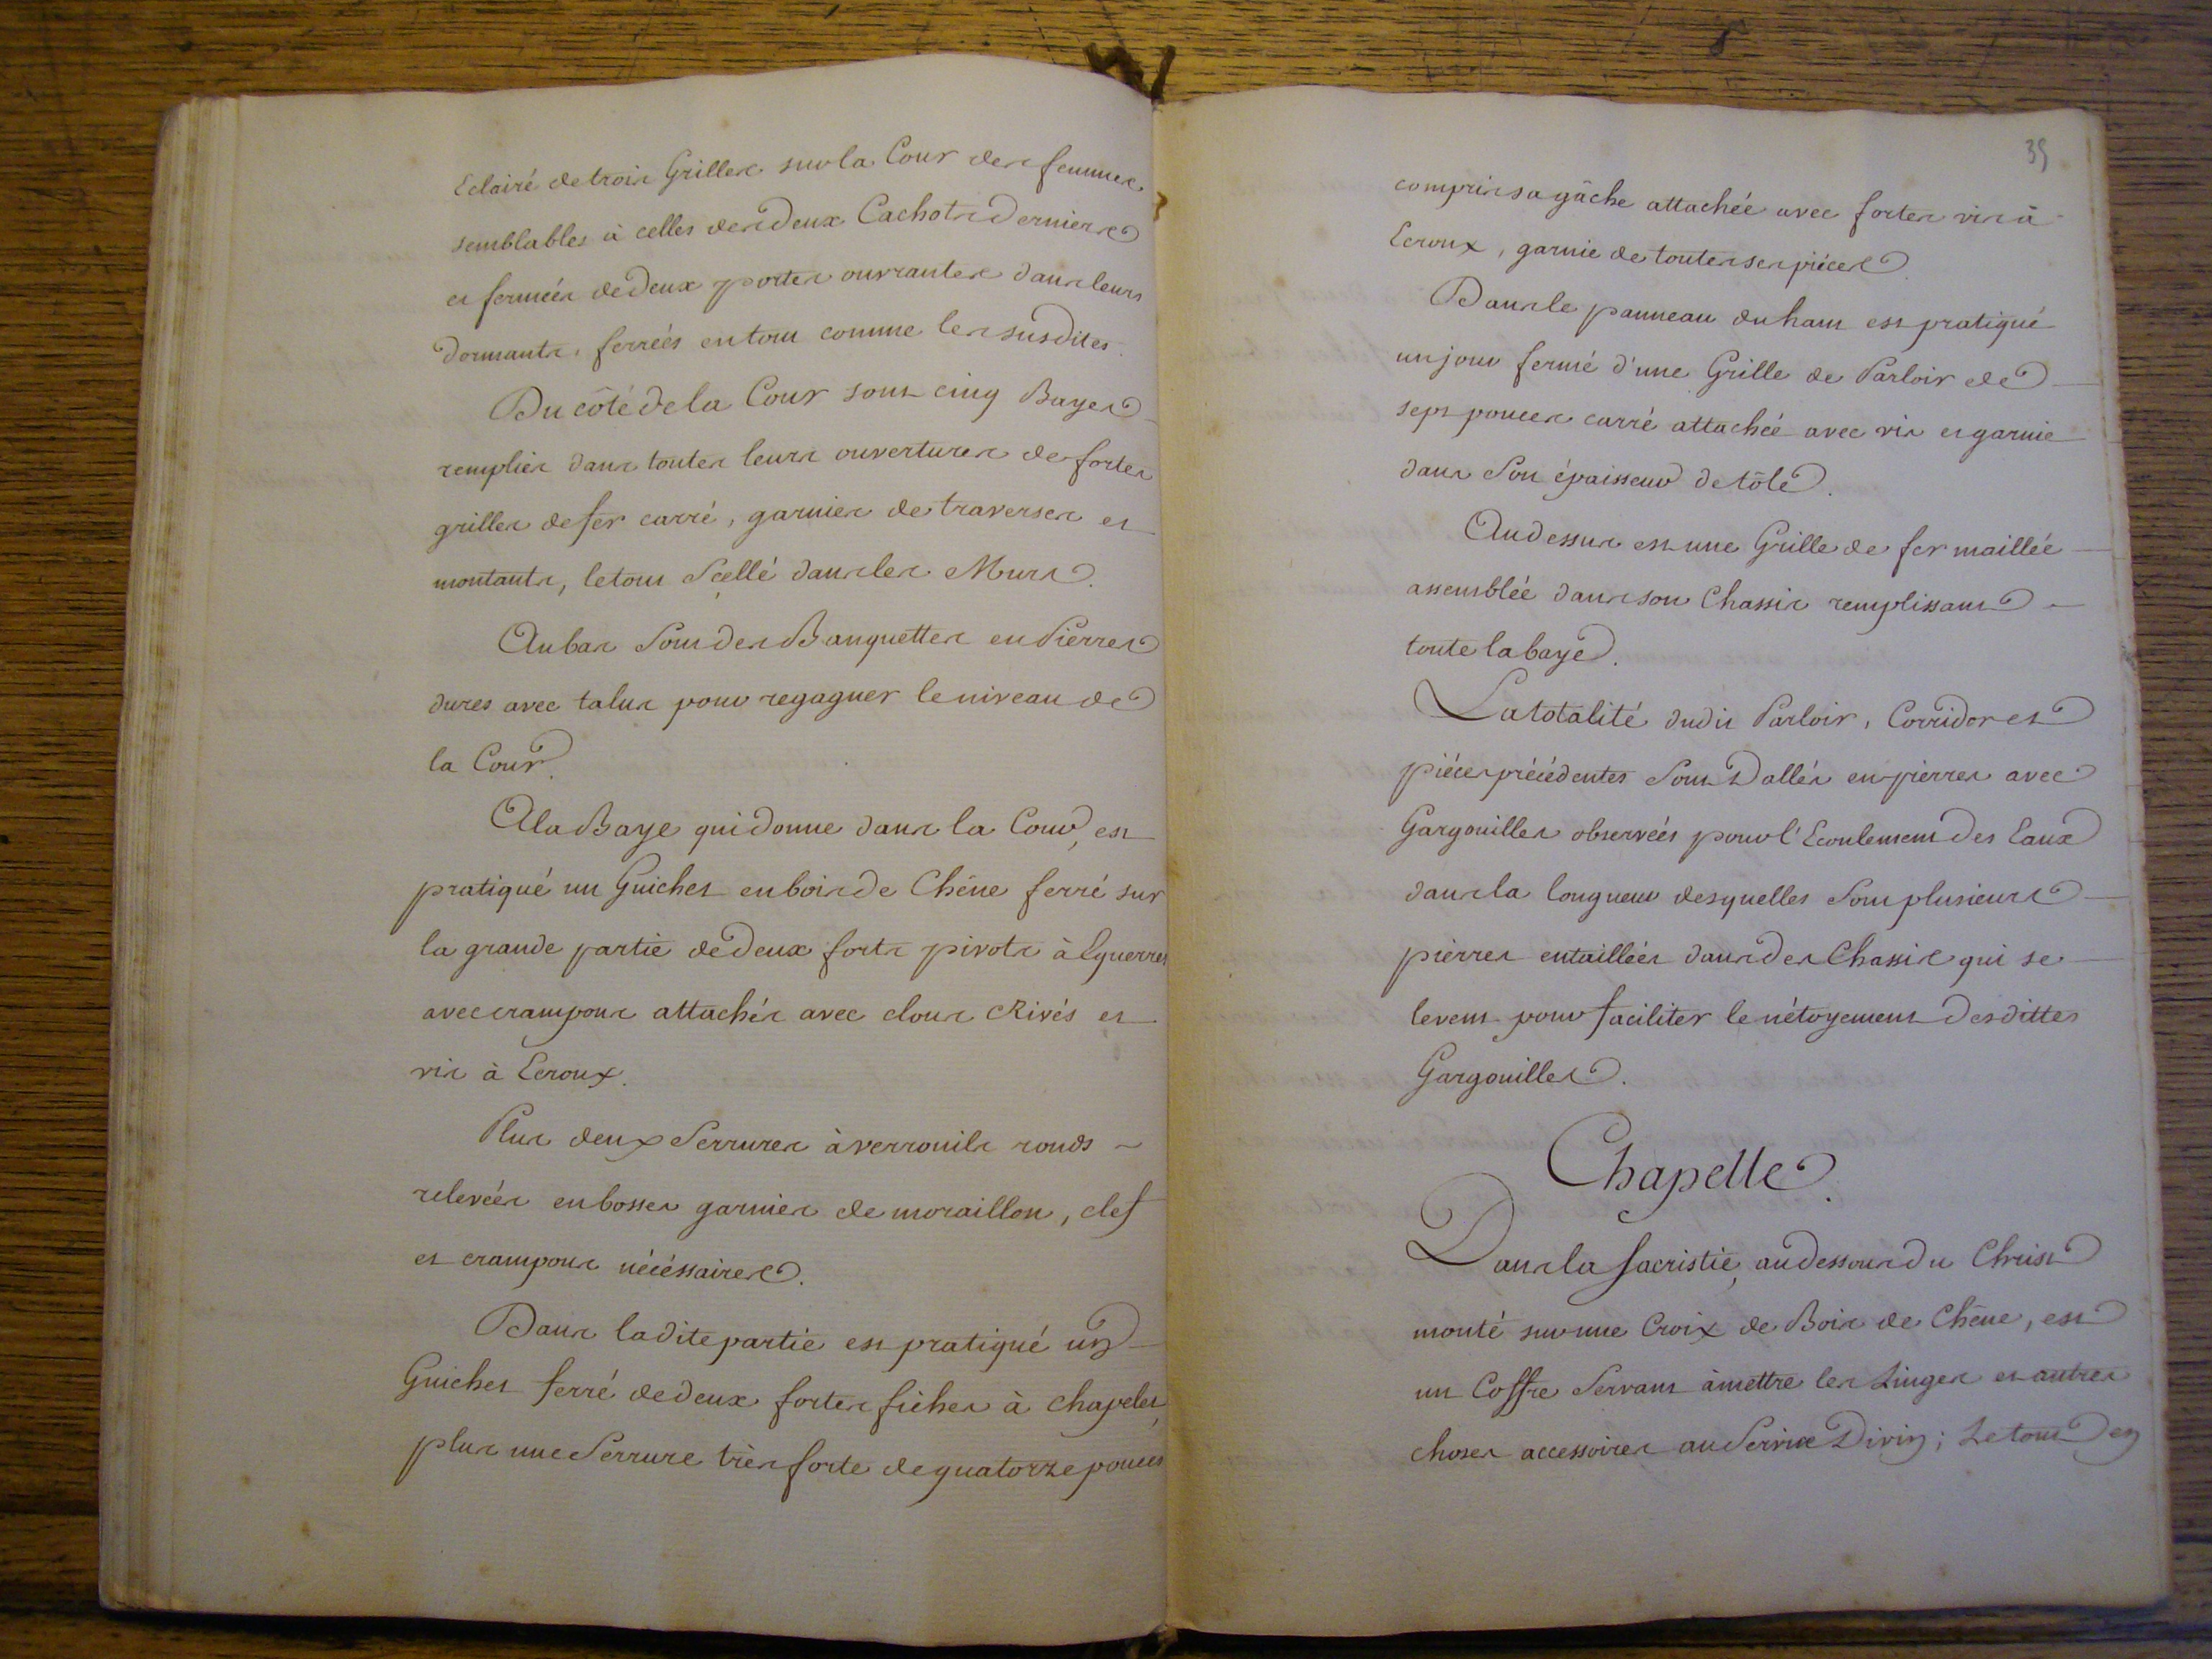 Eclairé de trois Grilles sur la Cour des femmes
semblables à celles des deux Cachots derniers
et fermées de deux portes ouvrantes dans leurs
dormants, ferrées en tout comme les susdites.
Du côté de la Cour sont cinq Bayes
remplies dans toutes leurs ouvertures de fortes
grilles de fer carré, garnies de traverses et
montants, le tout Scellé dans les Murs.
Au bas Sont des Banquettes en Pierres
dures avec talus pour regagner le niveau de
la Cour.
A la Baye qui donne dans la Cour, est
pratiqué un Guichet en bois de Chêne ferré sur
la grande partie de deux forts pivots à Equerres
avec crampons attachés avec clous Rivés et
vis à Ecroux.
Plus deux Serrures à verrouils ronds
relevées en bosses garnies de moraillon, clef
et crampons nécéssaires.
Dans la dite partie est pratiqué un
Guichet ferré de deux fortes fiches à chapelet,
plus une Serrure très forte de quatorze pouces
39
compris sa gâche attachée avec fortes vis à
Ecroux, garnie de toutes ses piéces
Dans le panneau du haut est pratiqué
un jour fermé d'une Grille de Parloir de
sept pouces carré attachée avec vis et garnie
dans Son épaisseur de tôle.
Au dessus est une Grille de fer maillée
assemblée dans son Chassis remplissant
toute la baye.
La totalité dudit Parloir, Corridor et
piéces précédentes Sont Dallés en pierres avec
Gargouilles observées pour l'Ecoulement des Eaux
dans la longueur desquelles Sont plusieurs
pierres entaillées dans des Chassis qui se
levent pour faciliter le nétoyement desdittes
Gargouilles.
Chapelle.
Dans la Sacristie, au dessous du Christ
monté sur une Croix de Bois de Chêne, est
un Coffre Servant à mettre les Linges et autres
choses accessoires au Service Divin; Le tout en